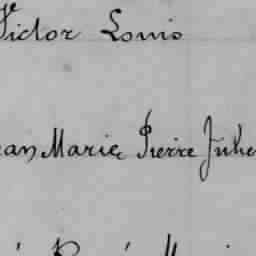 Victor Louis
ean Marie Pierre Juhe